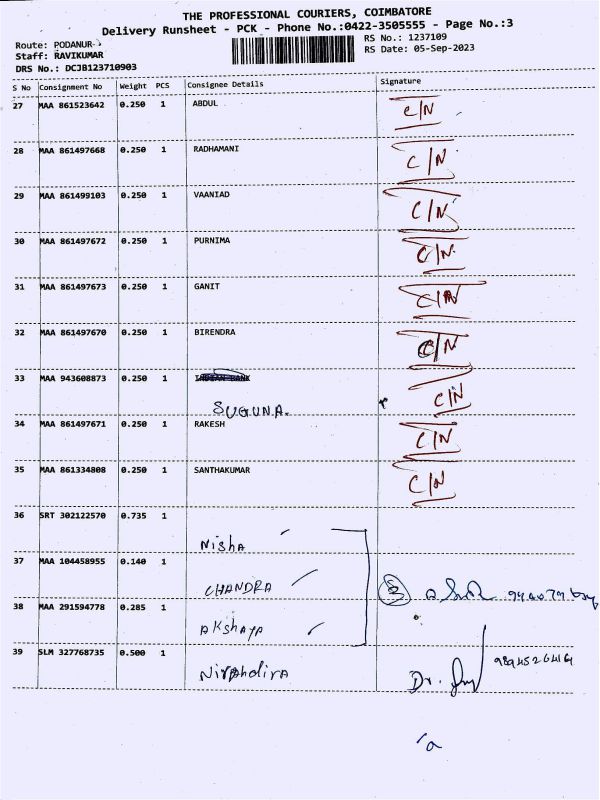 THE PROFESSIONAL COURIERS, COIMBATORE
Delivery Runsheet - PCK - Phone No.:0422-3505555 - Page No.:3
Route: PODANUR-
Staff: RAVIKUMAR
DRS No.: DCJB123710903
RS No.: 1237109
RS Date: 05-Sep-2023
S No Consignment No Weight PCS Consignee Details Signature
27 MAA 861523642 0.250 1 ABDUL C/N
28 MAA 861497668 0.250 1 RADHAMANI C/N
29 MAA 861499103 0.250 1 VAANIAD C/N
30 MAA 861497672 0.250 1 PURNIMA C/N
31 MAA 861497673 0.250 1 GANIT C/N
32 MAA 861497670 0.250 1 BIRENDRA C/N
33 MAA 943608873 0.250 1 C/N
SUGUNA.
34 MAA 861497671 0.250 1 RAKESH C/N
35 MAA 861334808 0.250 1 SANTHAKUMAR C/N
36 SRT 302122570 0.735 1
Nisha
37 MAA 104458955 0.140 1
CHANDRA
38 MAA 291594778 0.285 1
Akshaya
39 SLM 327768735 0.500 1
Dr.